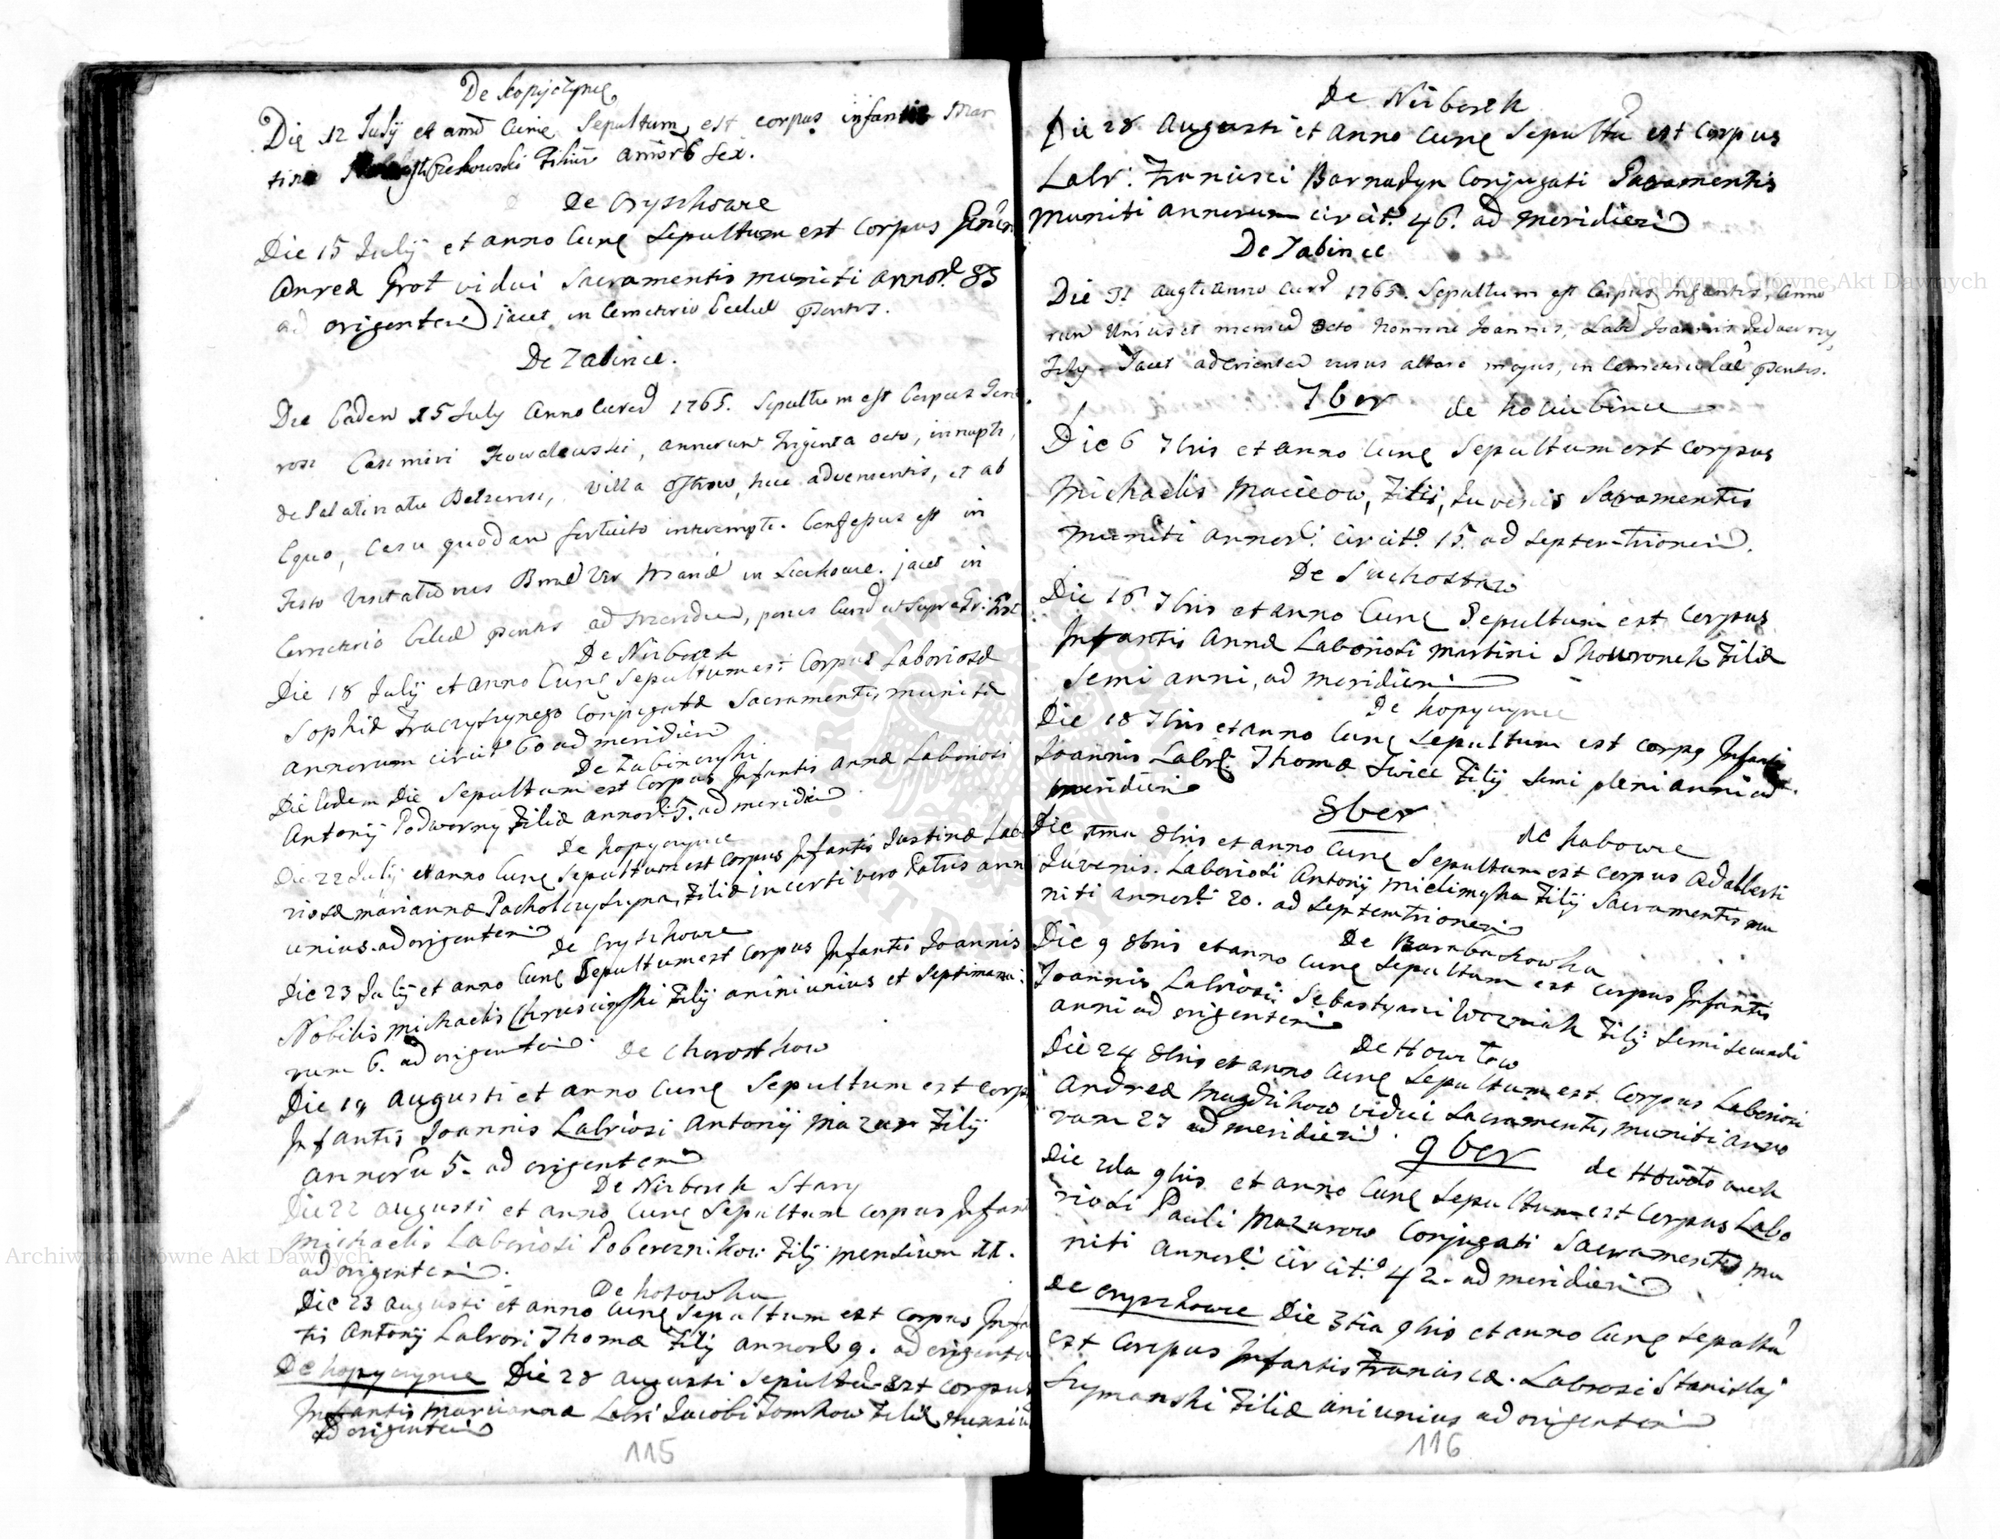 De Kopyczynce
Die 12 July et anno Curre Sepultum est corpus infantis Mar
tini Filius annorum sex.
De Oryszkowce
Die 15 July et anno Curre Sepultum est corpus Gener
Andreæ Grot vidui Sacramentis muniti annor. 85
ad orientem jacet in Cemeterio Ecclæ præsentis.
De Zabince.
Die Eadem 15 July Anno Curred 1765. Sepultum est Corpus Gene
rosi Casimiri Kowalewski, annorum Triginta octo, innupti,
de Palatinatu Belzensi, villa Ostrow, huc advenientis, et ab
Equo, Casu quodam fortuito interempti. Confessus est in
Festo Visitationis Bmæ Vir Mariæ in . jacet in
Cemeterio Ecclæ præsentis ad Meridiem, penes ut supra
De Niżborek
Die 18 July et anno Curre Sepultum est Corpus Laboriosæ
Sophiæ Conjugatæ Sacramentis munitæ
annorum circit 60 ad meridiem
De Zabinczyki
Die Eodem Die Sepultum est Corpus Infantis Annæ Laboriosi
Antonij Podworny Filiæ annor. 5. ad meridiem
De Kopyczynce
Die 22 July et anno Curre Sepultum est Corpus Infantis Justinæ Labo
riosæ Mariannæ Filiæ incerti vero Patris anni
unius. ad origentem
De Oryszkowce
Die 23 July et anno Curre Sepultum est Corpus Infantis Joannis
Nobilis Michaelis Chruscinski Filij anini unius et Septimana
rum 6. ad origentem.
De Chorostkow
Die 19 Augusti et anno Curre Sepultum est corp
Infantis Joannis Labriosi Antonij Mazur Filij
annoru 5. ad origentem
De Niżborek Stary
Die 22 augusti et anno Curre Sepultum corpus Infan
Michaelis Laboriosi Pobereznikow Filij mensium II.
ad origentem.
De Kotowka
Die 23 augusti et anno Curre Sepultum est corpus Infa
tis Antonij Labrori Thomæ Filij annorl 9. ad origente
De Kopyczynce Die 28 augusti Sepultu est corpus
Infantis Mariannæ Labri Jacobi Tomkow Filiæ
ad origentem
115
De Niżborek
Die 28 Augusti et anno Curre Sepultu est corpus
Labr. Francisci Barnadyn Conjugati Sacramentis
muniti annorum circit. 46. ad meridiem
De Zabince
Die 31 Augti anno Curr 1765. Sepultum est Corpus Infantis, Anno
rum Unius et mensium Octo nomine Joannis, Lab Joannis Podworny,
Filij. Jacet ad Orientem versus altare majus, in Cemeterio Ecclæ præsentis.
7ber de Kociubince
Die 6 7bris et anno Curre Sepultum est Corpus
Michaelis Macieow, Filij, Juvenis Sacramentis
muniti annorl. circit. 15. ad Septemtrionem.
De Suchostaw
Die 16 7bris et anno Curre Sepultum est Corpus
Infantis Annæ Laboriosi Martini Skowronek Filiæ
Semi anni, ad meridiem
De Kopyczynce
Die 18 7bris et anno Curre Sepultum est Corpq Infantis
Joannis Labrl Thomæ Filij Semi pleni anni ad
meridiem
8ber
de Kabowce
Die 8bris et anno Curre Sepultum est corpus Adalberti
Juvenis. Laboriosi Antonij Filij Sacramentis mu
niti annorl 20. ad Septemtrionem
De Barabaskowka
Die 9 8bris et anno Curre Sepultum est corpus Infantis
Joannis Labriosi Sebastyani Wozniak Filij Semi secundi
anni ad origentem
De Howiłow
Die 24 8bris et anno Curre Sepultum est Corpus Laboriosi
Andreæ vidui Sacramentis, muniti anno
rum 27 ad meridiem.
9ber
Die 2da 9bris et anno Curre Sepultum est Corpus Labo
riosi Pauli Mazurow Conjugati Sacramentis mu
niti annorl. circit. 42. ad meridiem
De Oryszkowce Die 3tia 9bris et anno Curre Sepultu
est Corpus Infantis Franciscæ. Labrosi Stanislaj
Szymanski Filiæ ani unius ad origentem
116
Archiwum Główne Akt Dawnych
Archiwum Główne Akt Dawnych